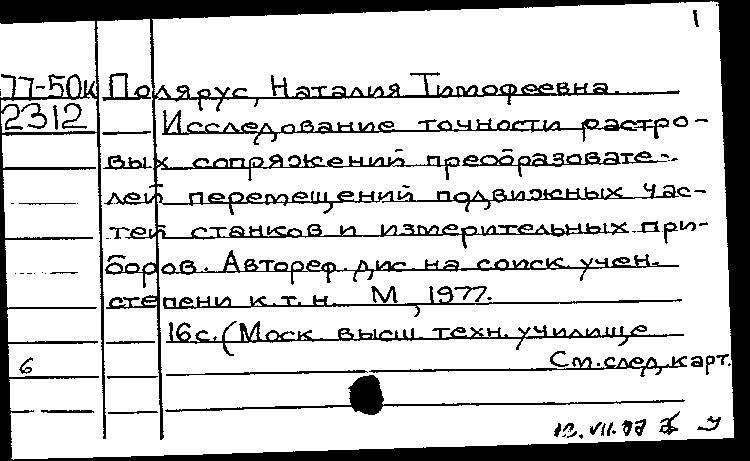 1
77-50к Полярус, Наталия Тимофеевна.
2312 Исследование точности растро-
вых сопряжений преобразовате-
лей перемещений подвижных час-
тей станков и измерительных при-
боров. Автореф. дис. на соиск. учен.
степени к.т.н. М, 1977.
16 с. (Моск. высш. техн. училище
6 См. след. карт.
VII.77